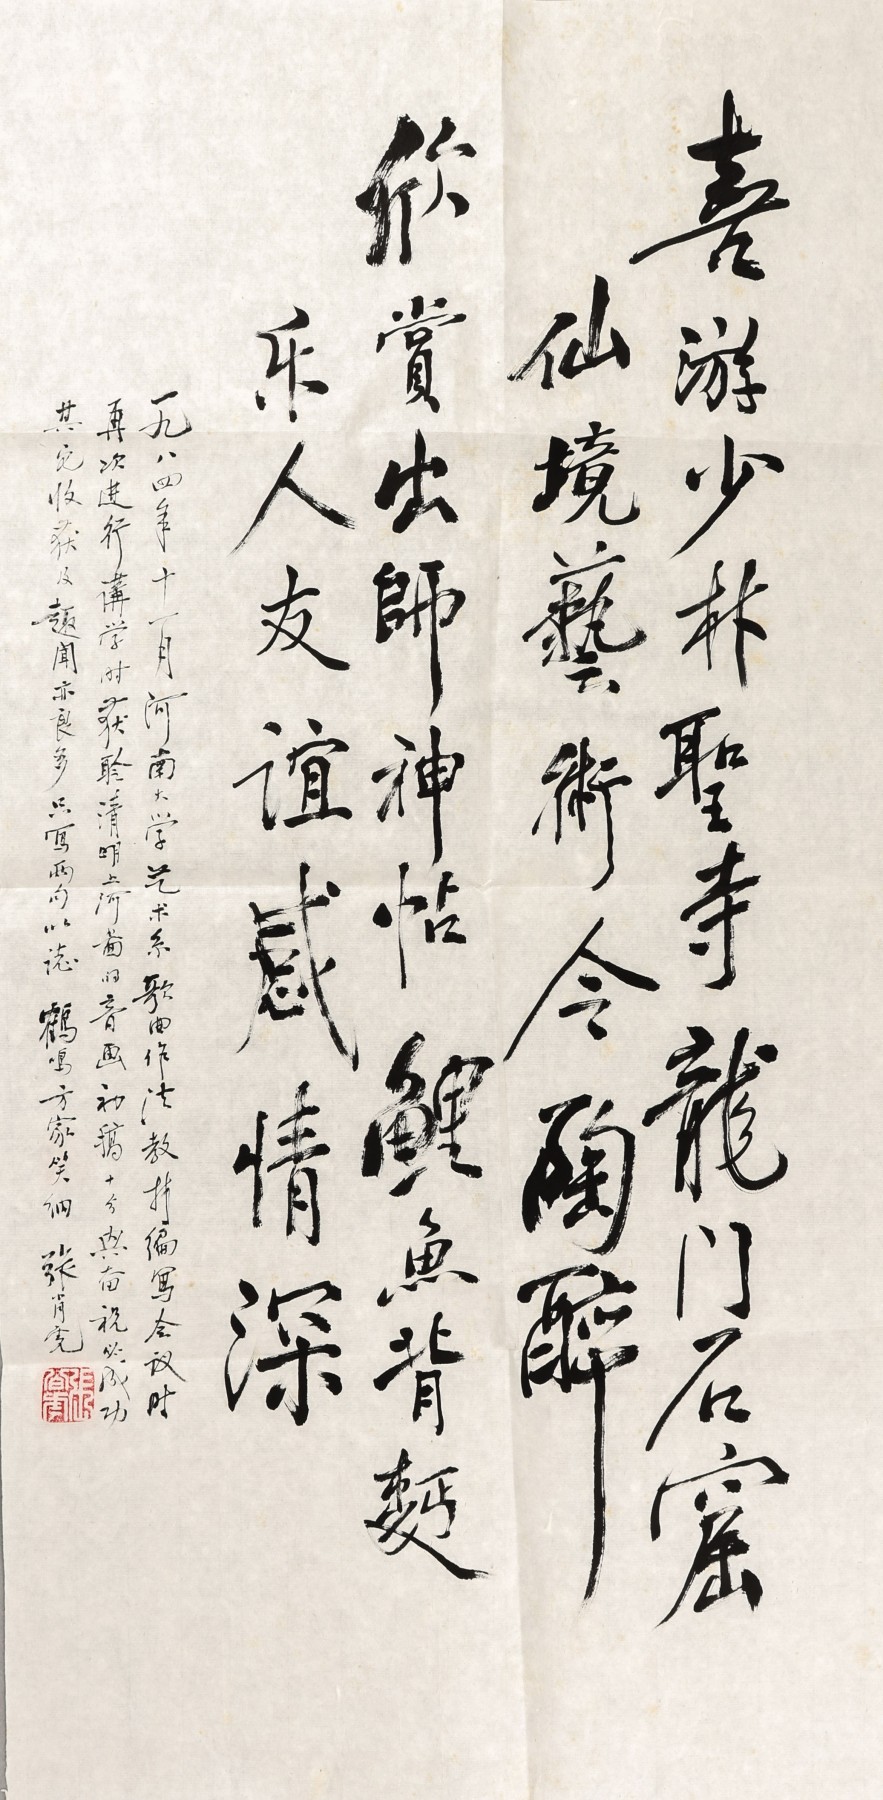 喜游少林聖寺龍门石窟
仙境藝術令陶醉
欣賞出師神帖鯉魚背麪
乐人友谊感情深
一九八四年十一月河南大学艺术系歌曲作法教材编写会议时
再次进行講学时获聆清明上河畫旧音画初稿十分兴奋祝必成功
其它收获及趣闻亦良多只写两句以誌鶴鸣方家笑纳张肖虎